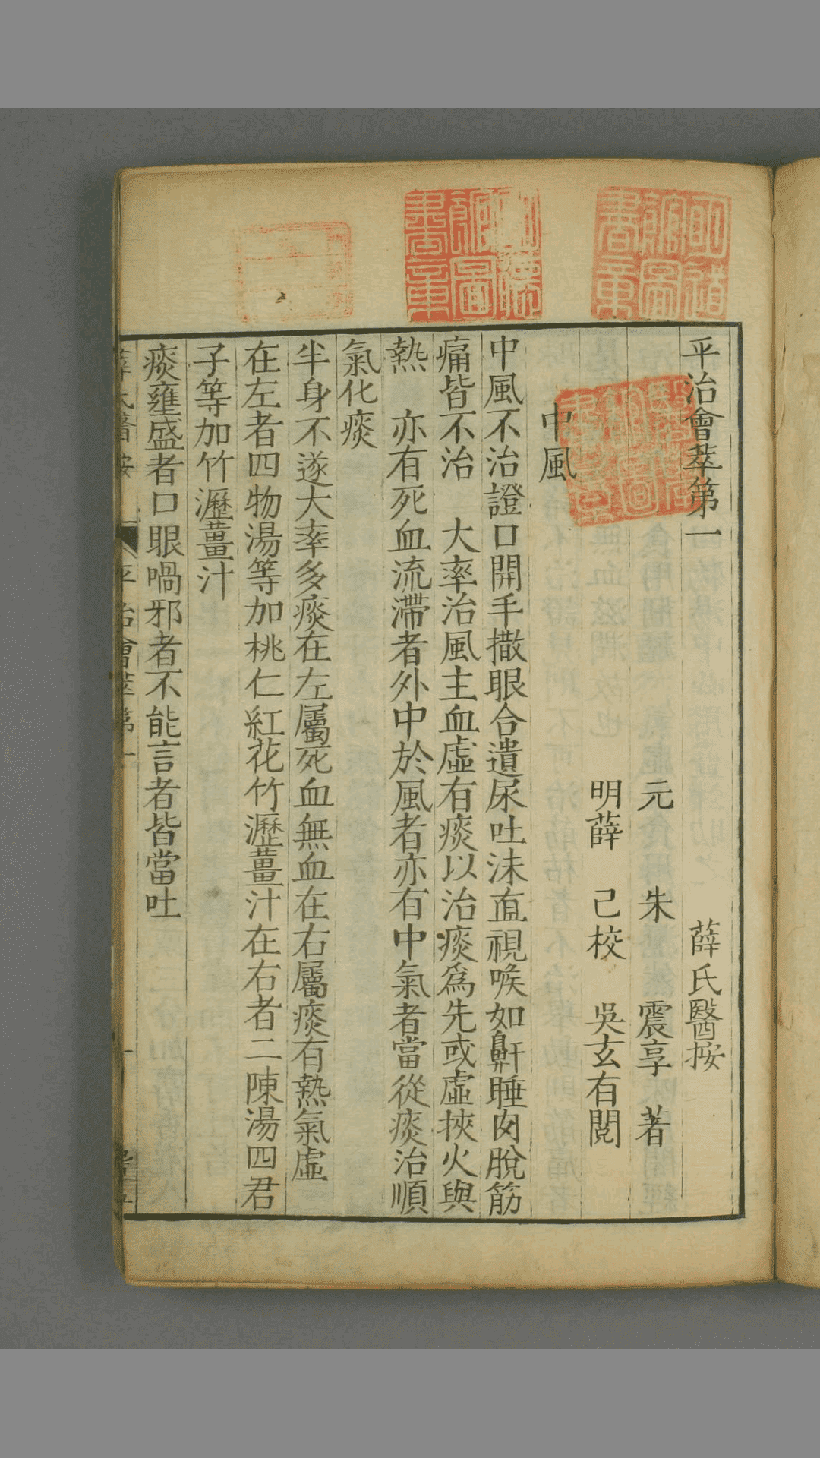 平治會萃第一　薛氏醫按
元　朱　震亨　著
明薛　己校　吳玄有閱
中風
中風不治證口開手撒眼合遺尿吐沫直視喉如鼾睡肉脫筋
痛皆不治　大率治風主血虛有痰以治痰爲先或虛挾火與
熱　亦有死血流滯者外中於風者亦有中氣者當從痰治順
氣化痰
半身不遂大率多痰在左屬死血無血在右屬痰有熱氣虛
在左者四物湯等加桃仁紅花竹瀝薑汁在右者二陳湯四君
子等加竹瀝薑汁
痰壅盛者口眼喎邪者不能言者皆當吐
平治會萃第一